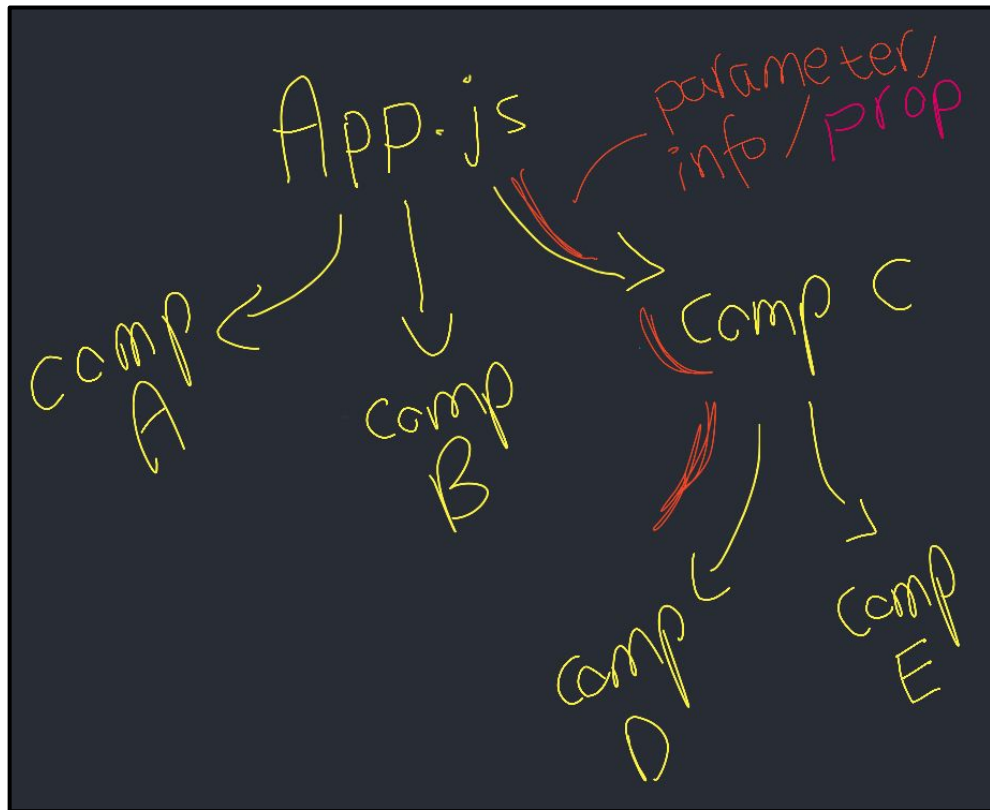 App.js
parameter/
info/prop
comp
A
comp
B
comp C
comp
D
comp
E